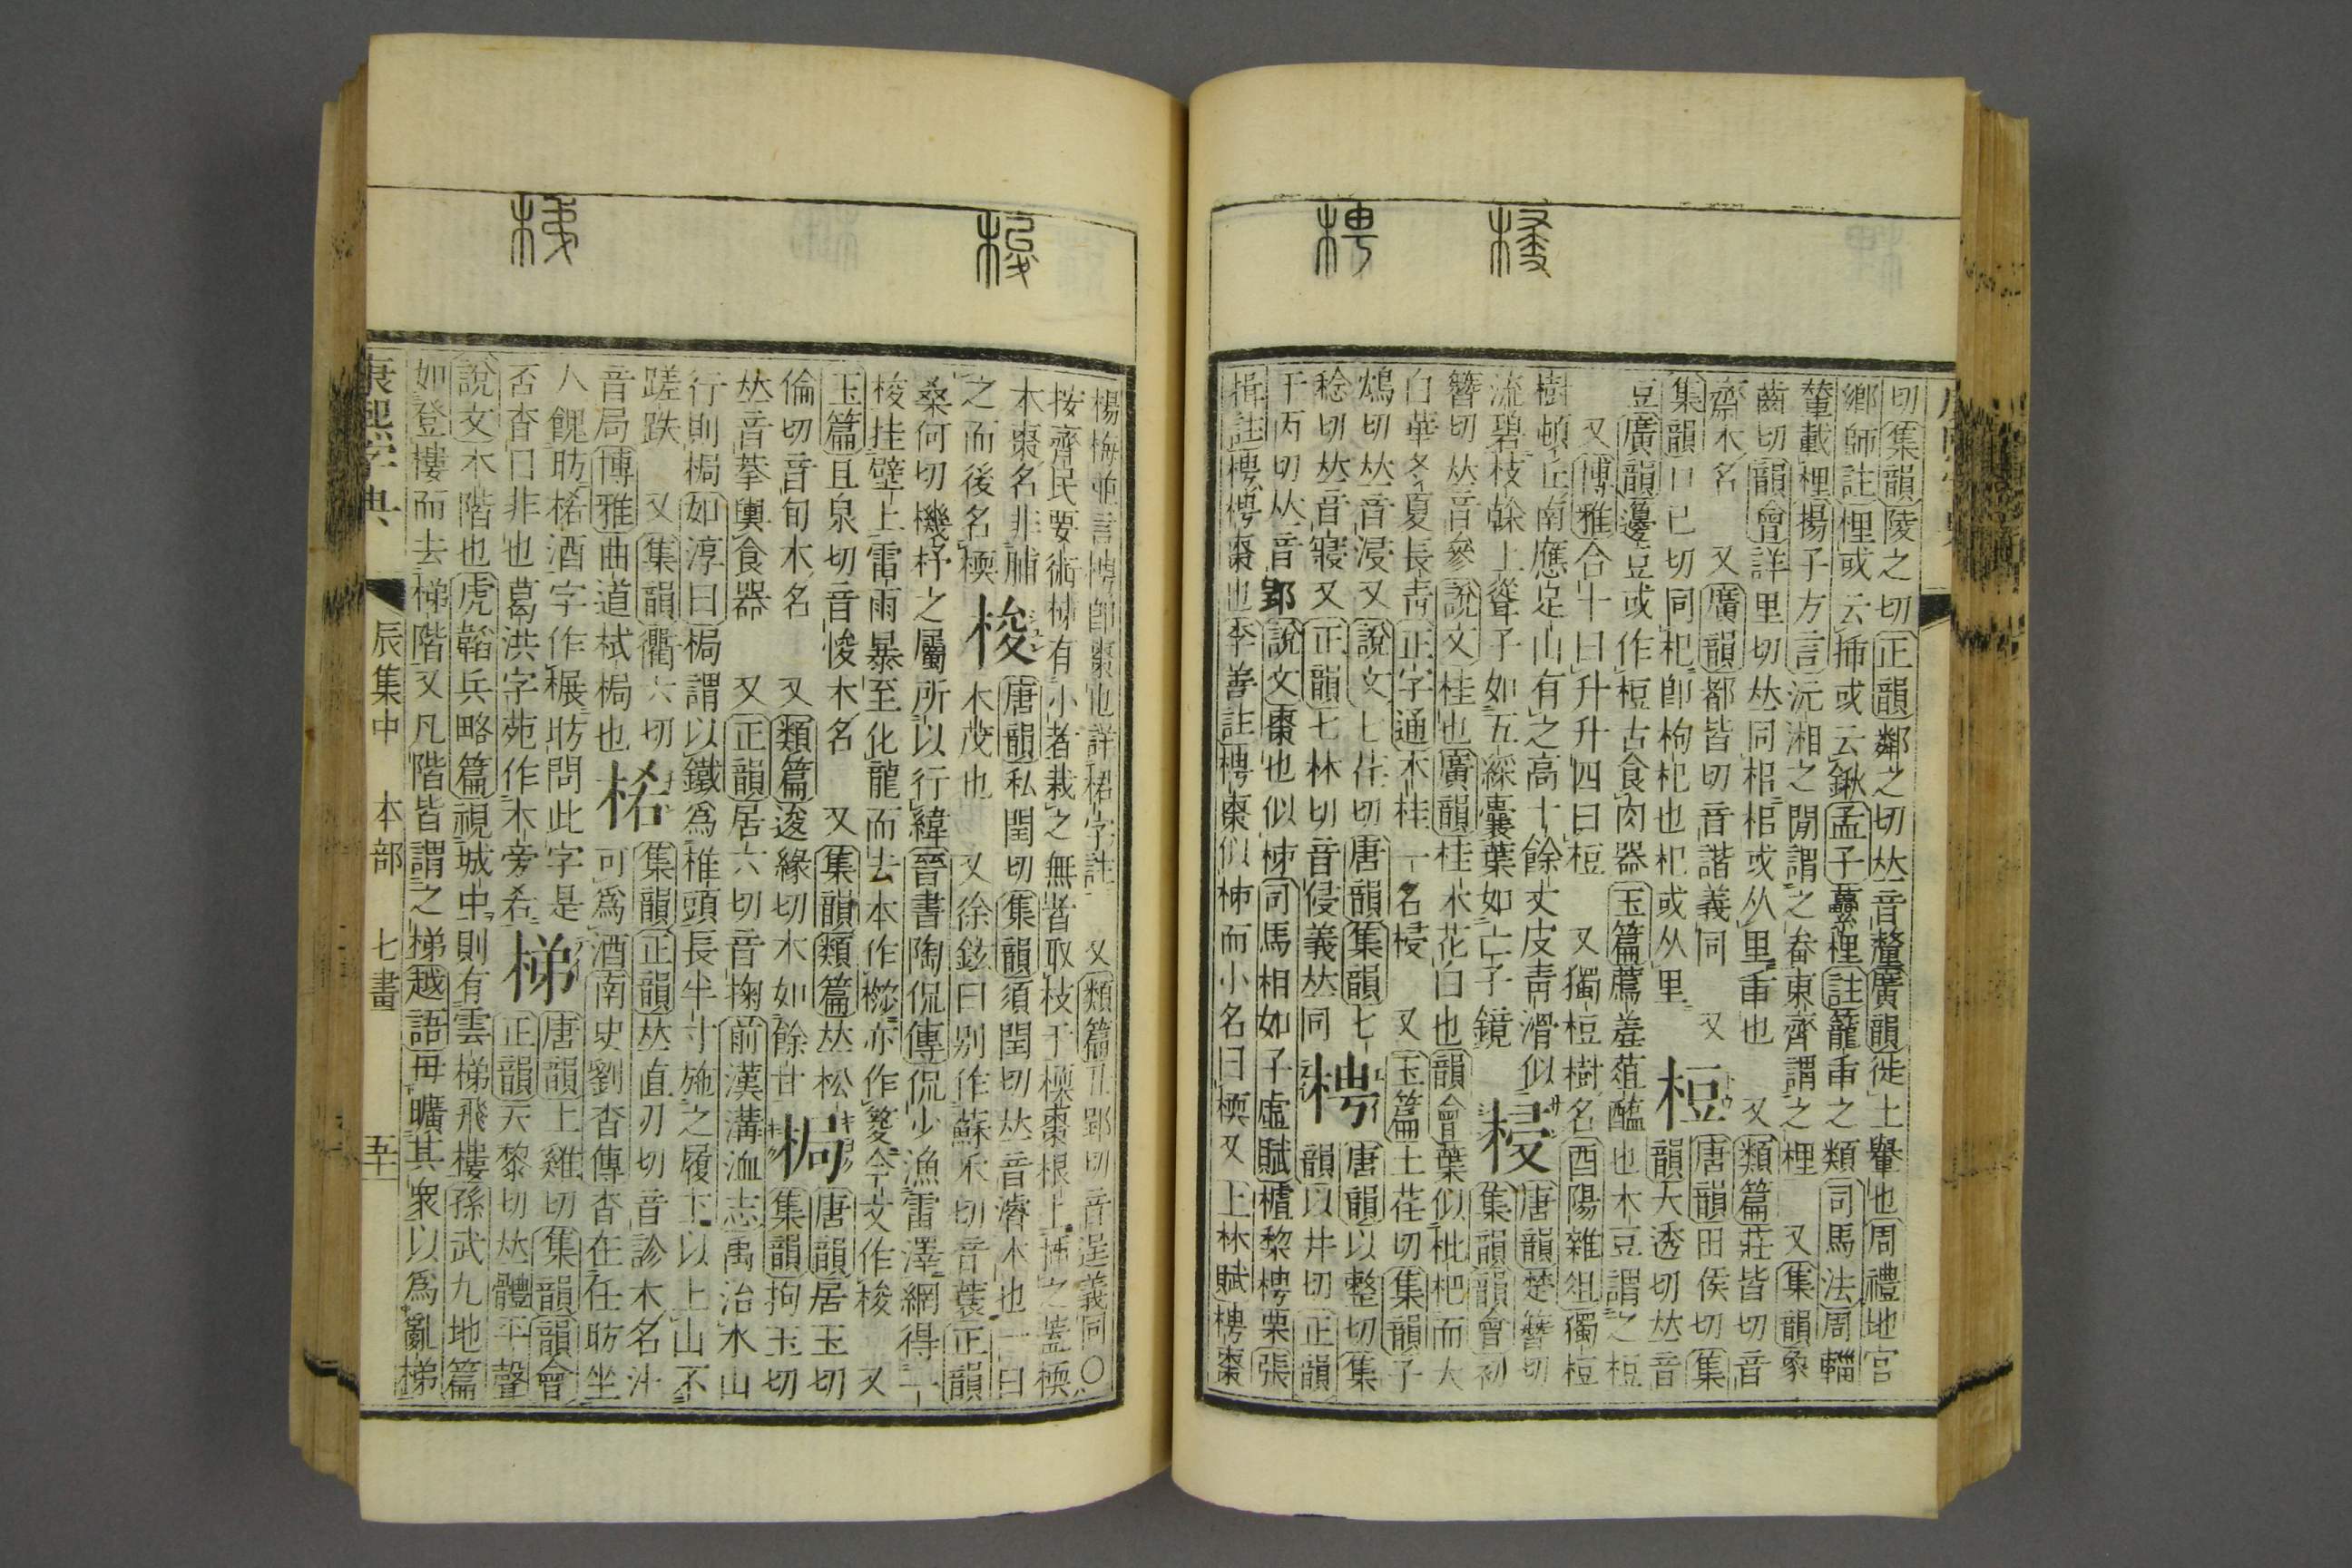 梫
梬
切集韻陵之切正韻鄰之切𠀤音釐廣韻徙土轝也周禮地官
鄉師註梩或云㮑或云鍬孟子虆梩註籠臿之類司馬法周輜
輦載梩揚子方言沅湘之閒謂之畚東齊謂之梩 又集韻象
齒切韻會詳里切𠀤同梠梠或从里臿也 又類篇莊皆切音
齋木名 又廣韻都皆切音諧義同 又
集韻口已切同杞卽枸杞也杞或从里
梪 唐韻田侯切集
韻大透切𠀤音
豆廣韻籩豆或作梪古食肉器玉篇薦羞菹醢也木豆謂之梪
又博雅合十曰升升四曰梪 又獨梪樹名酉陽雜俎獨梪
樹頓丘南應足山有之高十餘丈皮靑滑似
流碧枝榦上聳子如五綵囊葉如亡子鏡
梫 唐韻楚簪切
集韻韻會初
簪切𠀤音參說文桂也廣韻桂木花白也韻會葉似枇杷而大
白華冬夏長靑正字通木桂一名梫 又玉篇士荏切集韻子
鴆切𠀤音浸又說文七荏切唐韻集韻七
稔切𠀤音寢又正韻七林切音侵義𠀤同
梬 唐韻以整切集
韻以井切正韻
于丙切𠀤音郢說文棗也似柹司馬相如子虛賦樝黎梬栗張
揖註梬梬棗也李善註梬棗似柹而小名曰㮕又上林賦梬棗
梭
梯
楊梅並言梬卽棗也詳桾字註 又類篇丑郢切音逞義同○
按齊民要術柹有小者栽之無者取枝于㮕棗根上插之葢㮕
木棗名非脯
之而後名㮕
梭 唐韻私閏切集韻須閏切𠀤音濬木也一曰
木茂也 又徐鉉曰別作蘇禾切音蓑正韻
桑何切機杼之屬所以行緯晉書陶侃傳侃少漁雷澤網得一
梭挂壁上雷雨暴至化龍而去本作亦作㚇今文作梭 又
玉篇且泉切音悛木名 又集韻類篇𠀤松
倫切音旬木名 又類篇逡緣切木如餘甘
梮 唐韻居玉切
集韻拘玉切
𠀤音輂輿食器 又正韻居六切音掬前漢溝洫志禹治水山
行則梮如淳曰梮謂以鐵爲椎頭長半寸施之履下以上山不
蹉跌 又集韻衢六切
音局博雅曲道栻梮也
集韻正韻𠀤直刃切音診木名汁
可爲酒南史劉杳傳杳在任昉坐
人餽昉酒字作榐昉問此字是
否杳曰非也葛洪字苑作木旁
梯 唐韻土雞切集韻韻會
正韻天黎切𠀤體平聲
說文木階也虎韜兵略篇視城中則有雲梯飛樓孫武九地篇
如登樓而去梯階又凡階皆謂之梯越語毋曠其衆以爲亂梯
康熙字典 辰集中 木部 七畫 五十